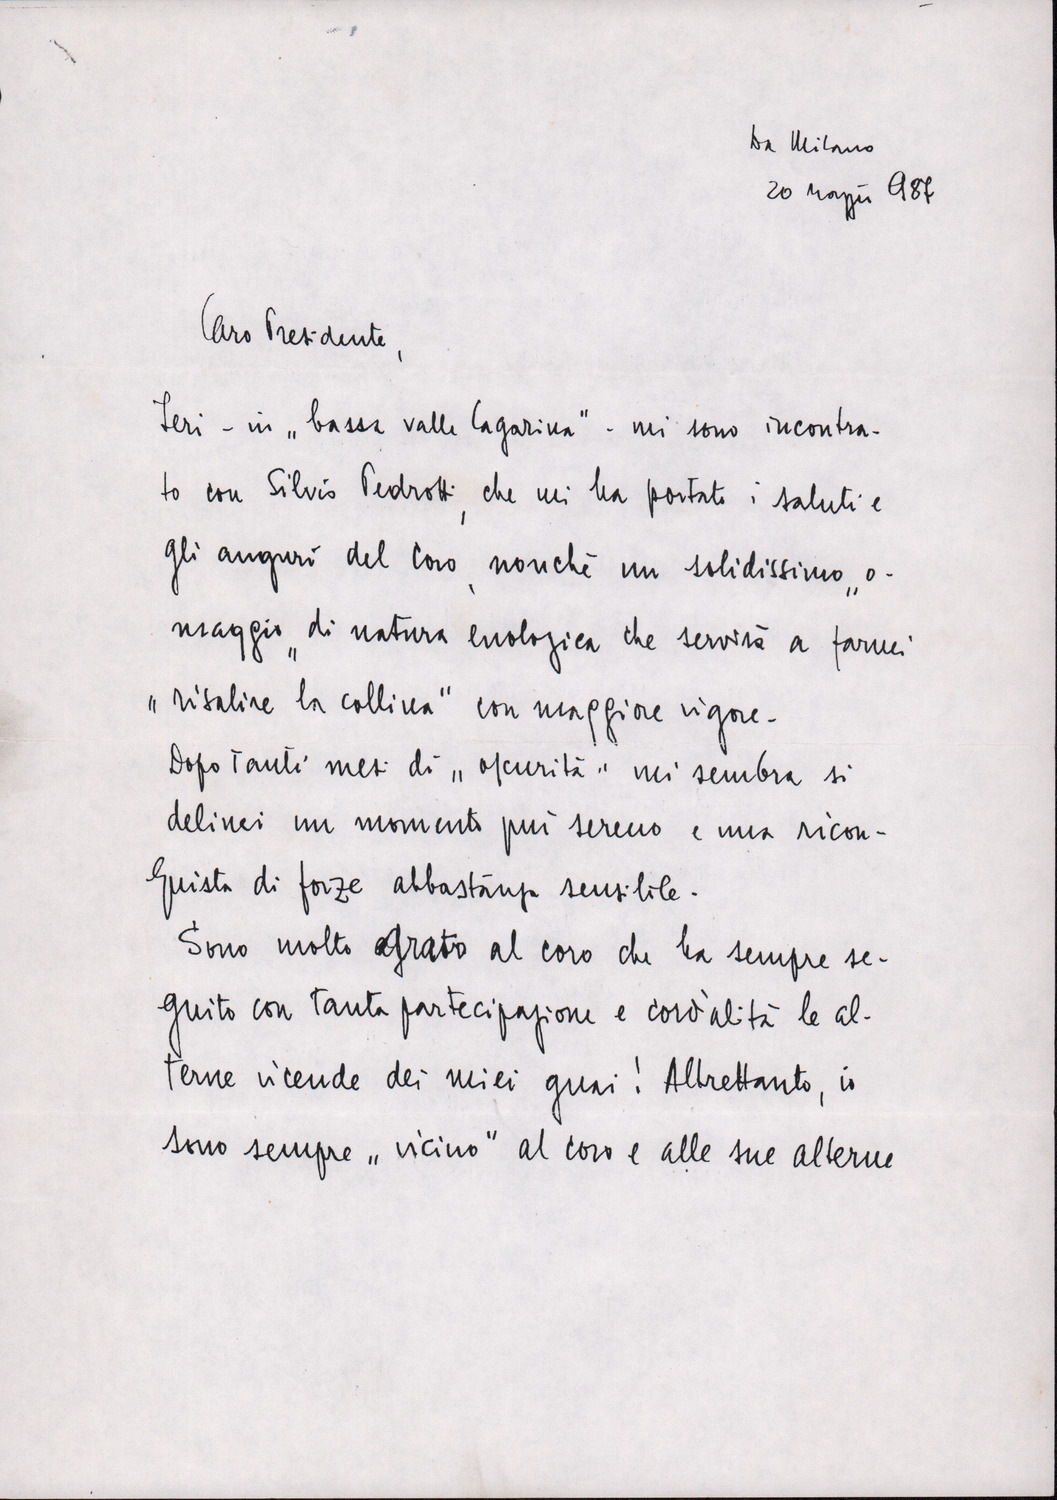 Da Milano
20 maggio 987
Caro Presidente,
Ieri - in „bassa valle lagarina" - mi sono incontra-
to con Silvio Pedrotti, che mi ha portato i saluti e
gli auguri del Coro, nonchè un solidissimo „o-
maggio„ di natura enologica che servirà a farmi
„risalire la collina" con maggiore vigore.
Dopo tanti mesi di „oscurità" mi sembra si
delinei un momento più sereno e una ricon-
quista di forze abbastanza sensibile.
Sono molto grato al coro che ha sempre se-
guito con tanta partecipazione e cordialità le al-
terne vicende dei miei guai! Altrettanto, io
sono sempre „vicino" al coro e alle sue alterne